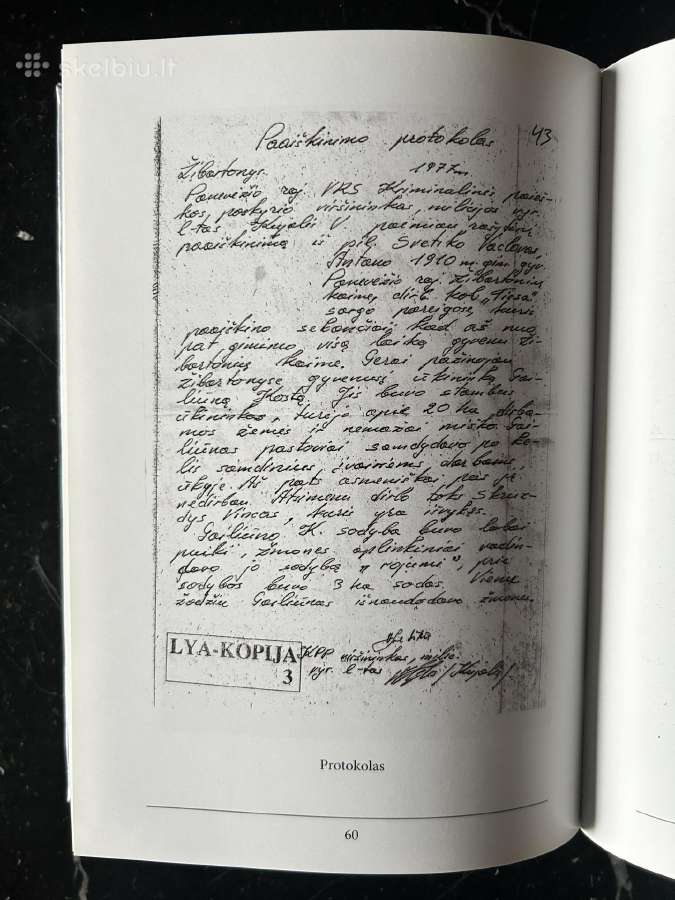 skelbiu.lt
43
Paaiškinimo protokolas
Žibartonys. 1977 m.
Panevėžio raj. VRS Kriminalinės paieš-
kos poskyrio viršininkas, milicijos vyr.
l-tas Kujalis V. paėmiau raštišką
paaiškinimą iš pil. Svetiko Vaclovas,
Antano 1910 m. gim. gyv.
Panevėžio raj. Žibartonių
kaime, dirb. kol. „Tiesa"
sargo pareigose, kuris
paaiškino sekančiai, kad aš nuo
pat gimimo visą laiką gyvenu Ži-
bartonių kaime. Gerai pažinojau
Žibartonyse gyvenusį ūkininką Gai-
liūną Kostą. Jis buvo stambus
ūkininkas, turėjo apie 20 ha dirba-
mos žemės ir nemažai miško. Gai-
liūnas pastoviai samdydavo po ke-
lis samdinius, įvairiems darbams,
ūkyje. Aš pats asmeniškai pas jį
nedirbau. Atsimenu dirb. toks Skruz-
dys Vincas, kuris yra išvykęs.
Gailiūno, K. sodyba buvo labai
puiki, žmonės aplinkiniai vadin-
davo jo sodybą „rojumi", prie
sodybos buvo 3 ha sodas. Vienu
žodžiu Gailiūnas išnaudodavo žmones.
LYA-KOPIJA
3
KPP viršininkas, milic.
vyr. l-tas /Kujalis/
Protokolas
60